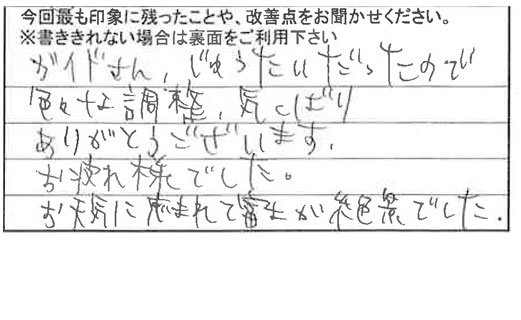 今回最も印象に残ったことや、改善点をお聞かせください。
※書ききれない場合は裏面をご利用下さい
ガイドさん、じゅうたいだったので
色々な調整、気くばり
ありがとうございます.
お疲れ様でした。
お天気に恵まれて富士が絶景でした.